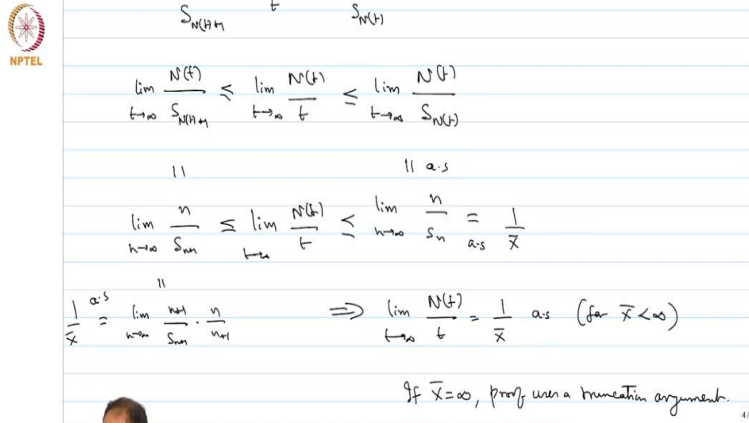 S_{N(t)+1} t S_{N(t)}
NPTEL
lim_{t→∞} N(t)/S_{N(t)+1} ≤ lim_{t→∞} N(t)/t ≤ lim_{t→∞} N(t)/S_{N(t)}
|| || a.s
lim_{n→∞} n/S_{n+1} ≤ lim_{t→∞} N(t)/t ≤ lim_{n→∞} n/S_n =_{a.s} 1/x̄
||
1/x̄ =^{a.s} lim_{n→∞} n+1/S_{n+1} · n/n+1 ⟹ lim_{t→∞} N(t)/t = 1/x̄ a.s (for x̄ < ∞)
If x̄ = ∞, proof uses a truncation argument.
4/